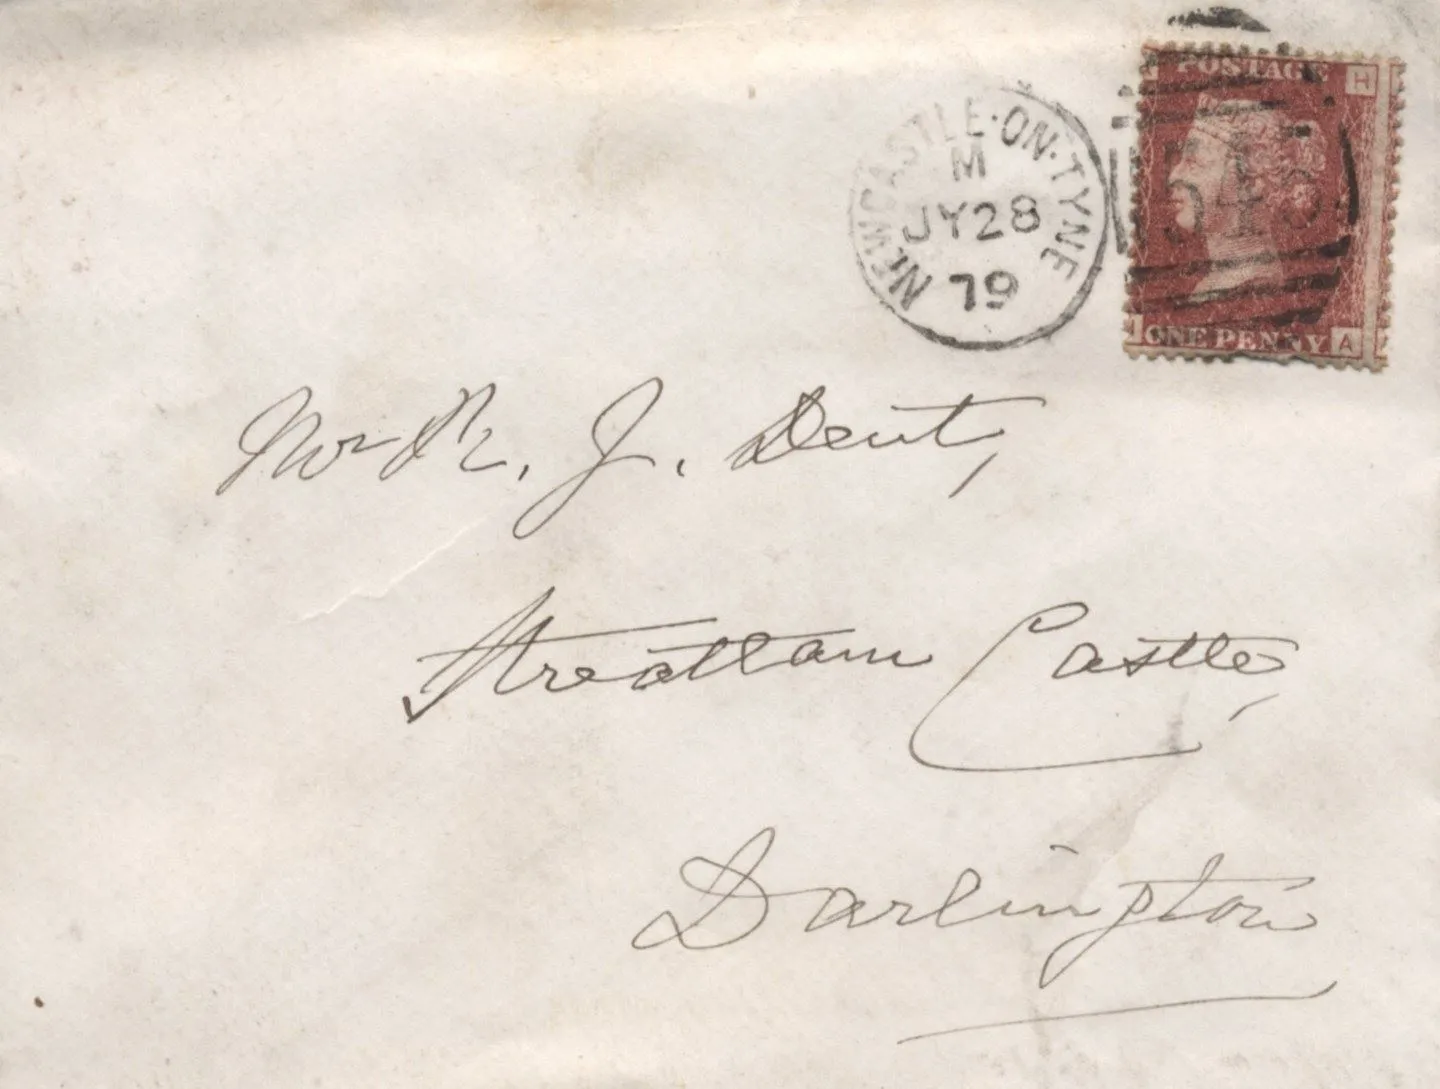 POSTAGE H
NEWCASTLE·ON·TYNE
M
JY28
79
545
ONE PENNY A
Mr R. J. Dent,
Streatlam Castle,
Darlington